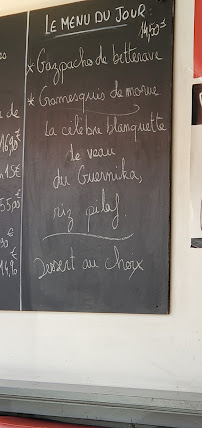 LE MENU DU JOUR:
14,50€
* Gazpacho de betterave
* Gramesquis de morue
La célèbre blanquette
de veau
du Guernika,
riz pilaf.
Dessert au choix